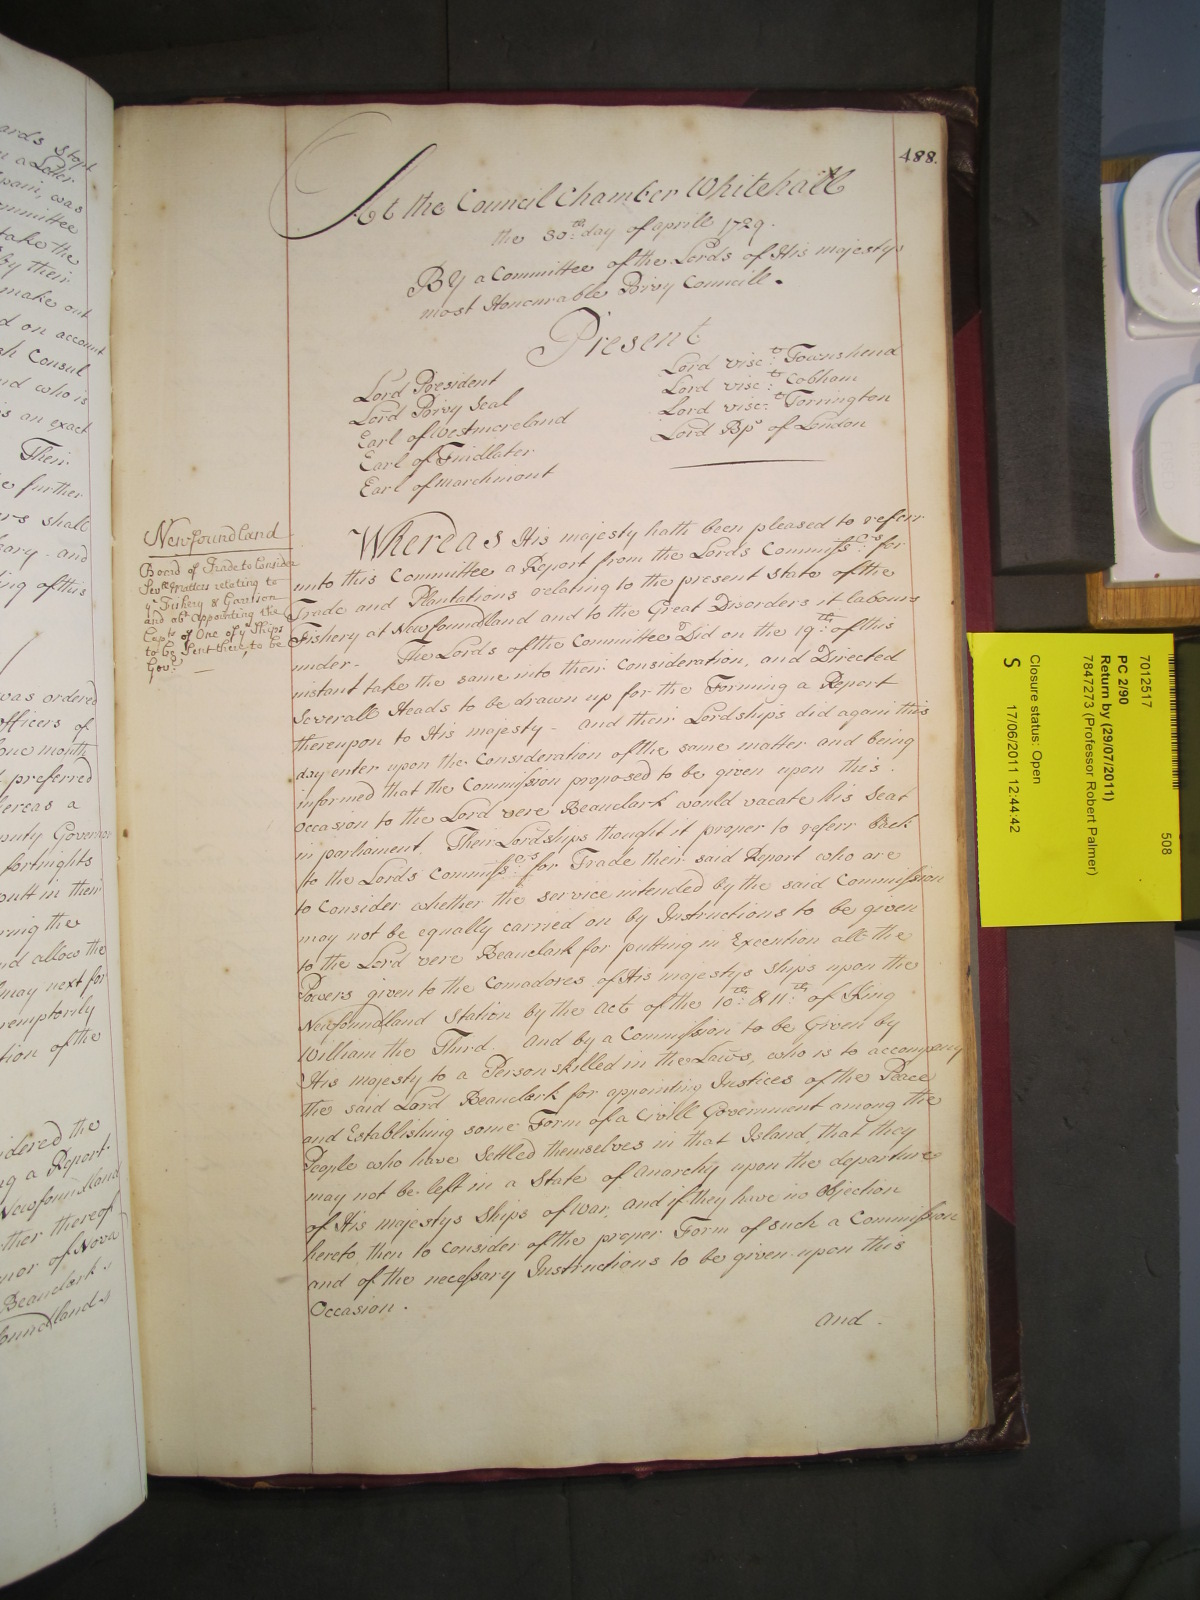 ards stopt
n a Letter
pain, was
ommittee
take the
by their
make out
d on account
sh Consul
nd who is
is an exact
Their
e further
ers shall
eary and
ing of this
was ordered
officers of
one month
preferred
hereas a
puty Governor
fortnights
putt in their
ring the
nd allow the
may next for
remptorily
tion of the
idered the
ng a Report
Newfoundland
ther thereof
nor of Nova
Beauclark
oundland
488.
At the Council Chamber Whitehall
the 30th: day of aprill 1729.
By a Committee of the Lords of His majestys
most Honourable Privy Councill.
Present
Lord President
Lord Privy Seal
Earl of Westmoreland
Earl of Findlater
Earl of Marchmont
Lord visct: Townshend
Lord visct: Cobham
Lord visct: Torrington
Lord Bp of London
Newfoundland
Board of Trade to Consider
Sevll Matters relating to
ye Fishery & Garrison
and abt appointing the
Capt of One of ye Ships
to be Sent there, to be
Govr
Whereas His majesty hath been pleased to referr
unto this Committee a Report from the Lords Commissrs: for
Trade and Plantations relating to the present State of the
Fishery at Newfoundland and to the Great Disorders it labours
under. The Lords of the Committee Did on the 19th: of this
instant take the same into their Consideration, and Directed
Severall Heads to be drawn up for the Forming a Report
thereupon to His majesty - and their Lordships did again this
day enter upon the Consideration of the same matter and being
informed that the Commission proposed to be given upon this
Occasion to the Lord vere Beauclark would vacate his Seat
in parliament. Their Lordships thought it proper to referr Back
to the Lords Commissrs: for Trade their said Report who are
to Consider whether the service intended by the said Commission
may not be equally carried on by Instructions to be given
to the Lord vere Beauclark for putting in Execution all the
Powers given to the Comadores of His majestys Ships upon the
Newfoundland Station by the act of the 10th: & 11th: of King
William the Third and by a Commission to be Given by
His majesty to a Person skilled in the Laws, who is to accompany
the said Lord Beauclark for appointing Justices of the Peace
and Establishing some Form of a Civill Government among the
People who have Settled themselves in that Island, that they
may not be left in a State of Anarchy upon the departure
of His majestys Ships of War, and if they have no Objection
hereto then to Consider of the proper Form of such a Commission
and of the necessary Instructions to be given upon this
Occasion.
and
7012517
508
PC 2/90
Return by (29/07/2011)
7847273 (Professor Robert Palmer)
Closure status: Open
S 17/06/2011 12:44:42